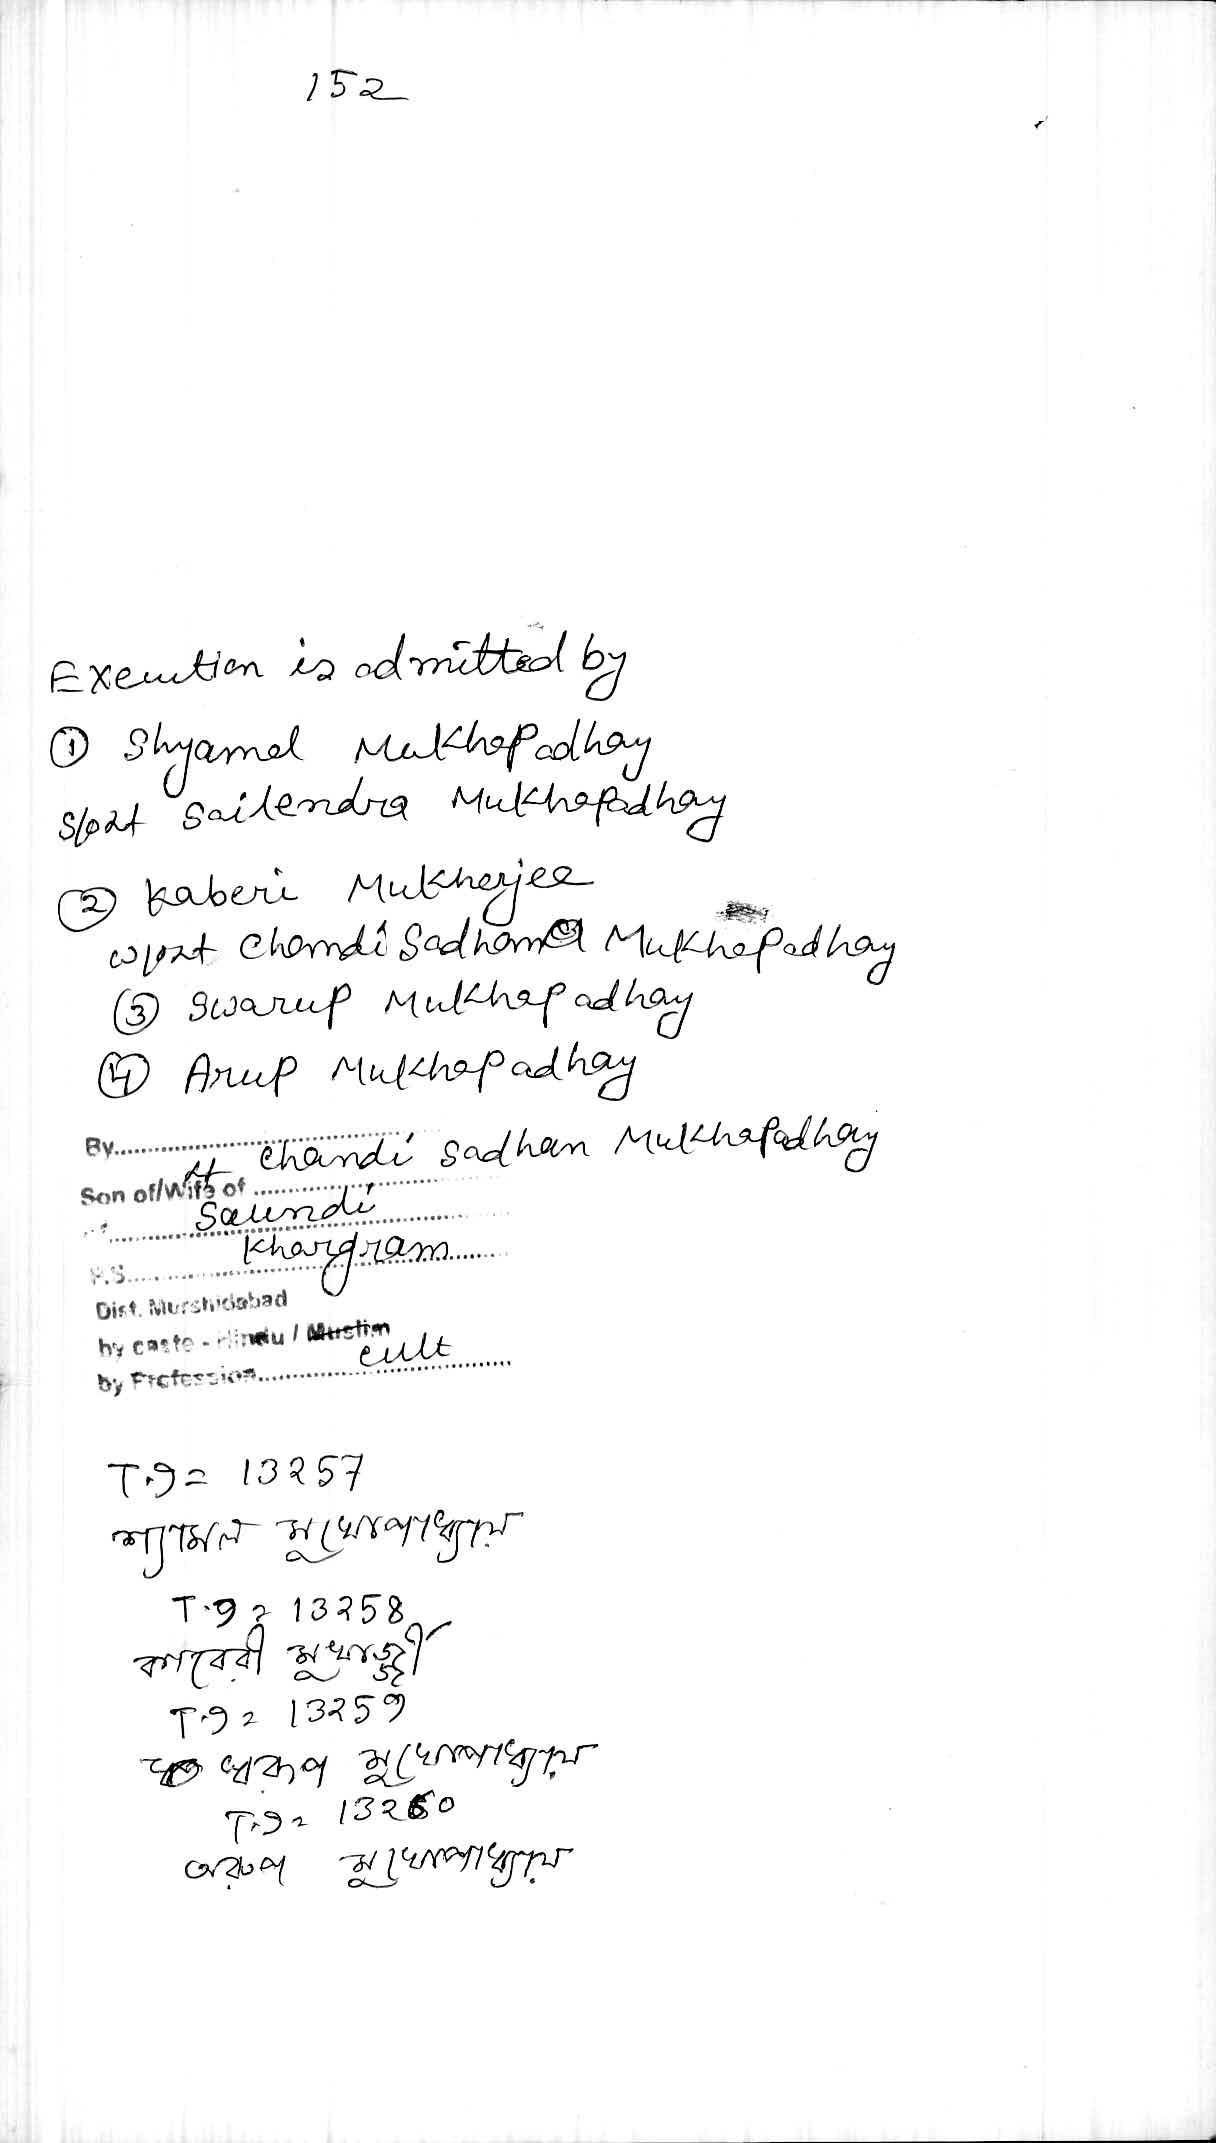 152
Execution is admitted by
① Shyamal Mukhopadhay
S/o Lt Sailendra Mukhopadhay
② Kaberi Mukherjee
W/o Lt Chandi Sadhan Mukhopadhay
③ Swarup Mukhopadhay
④ Arup Mukhopadhay
By
Son of/Wife of Lt Chandi Sadhan Mukhopadhay
Saundi
P.S. Khargram
Dist. Murshidabad
by caste - Hindu / Muslim
by Profession cult
T.೨= 13257
শ্যামল মুখোপাধ্যায়
T.೨= 13258
কাবেরী মুখার্জ্জী
T.೨= 13259
স্বরূপ মুখোপাধ্যায়
T.೨= 13260
অরুপ মুখোপাধ্যায়